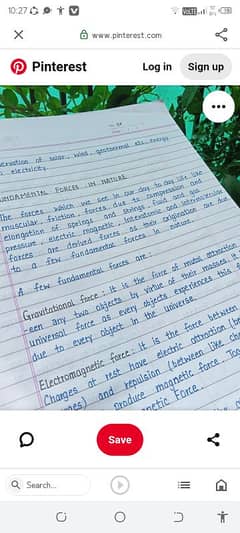 10:27
www.pinterest.com
Pinterest Log in Sign up
ervation of solar, wind, geothermal etc. energy
electricity.
NDAMENTAL FORCES IN NATURE
The forces which we see in our day to day life like
muscular, friction, forces due to compression and
elongation of springs and strings, fluid and gas
pressure, electric, magnetic, interatomic and intermolecular
forces are derived forces as their origination are due
to a few fundamental forces in nature.
A few fundamental forces are:
Gravitational force: It is the force of mutual attraction
-een any two objects by virtue of their masses. It
universal force as every objects experiences this
due to every object in the universe.
Electromagnetic force: It is the force between
Charges at rest have electric attraction (be
ges) and repulsion (between like char
produce magnetic force. Toge
netic Force.
Save
Search...